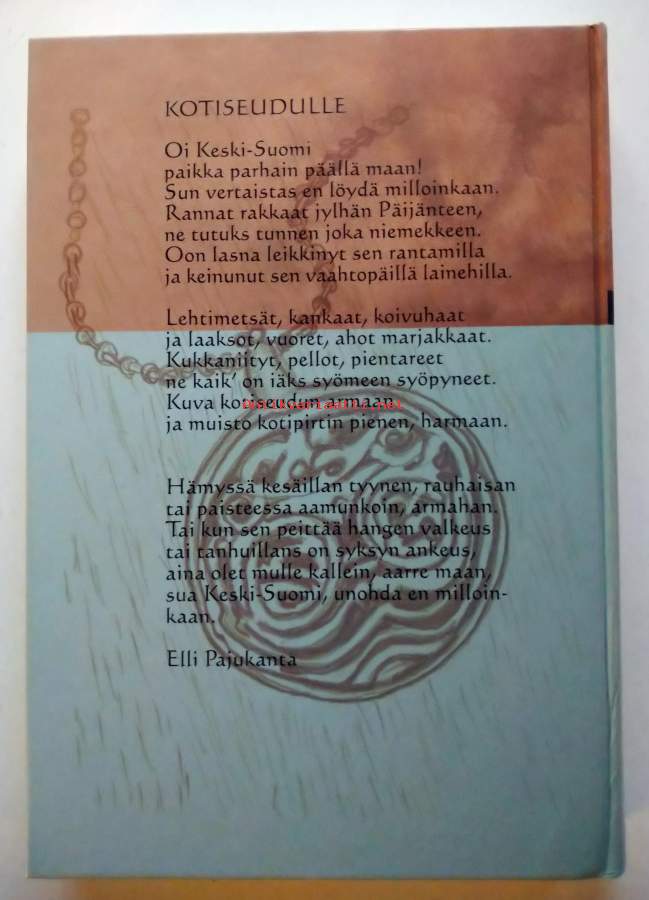 KOTISEUDULLE
Oi Keski-Suomi
paikka parhain päällä maan!
Sun vertaistas en löydä milloinkaan.
Rannat rakkaat jylhän Päijänteen,
ne tutuks tunnen joka niemekkeen.
Oon lasna leikkinyt sen rantamilla
ja keinunut sen vaahtopäillä lainehilla.
Lehtimetsät, kankaat, koivuhaat
ja laaksot, vuoret, ahot marjakkaat.
Kukkaniityt, pellot, pientareet
ne kaik' on iäks syömeen syöpyneet.
Kuva kotiseudun armaan
ja muisto kotipirtin pienen, harmaan.
Hämyssä kesäillan tyynen, rauhaisan
tai paisteessa aamunkoin, armahan.
Tai kun sen peittää hangen valkeus
tai tanhuillans on syksyn ankeus,
aina olet mulle kallein, aarre maan,
sua Keski-Suomi, unohda en milloin-
kaan.
Elli Pajukanta